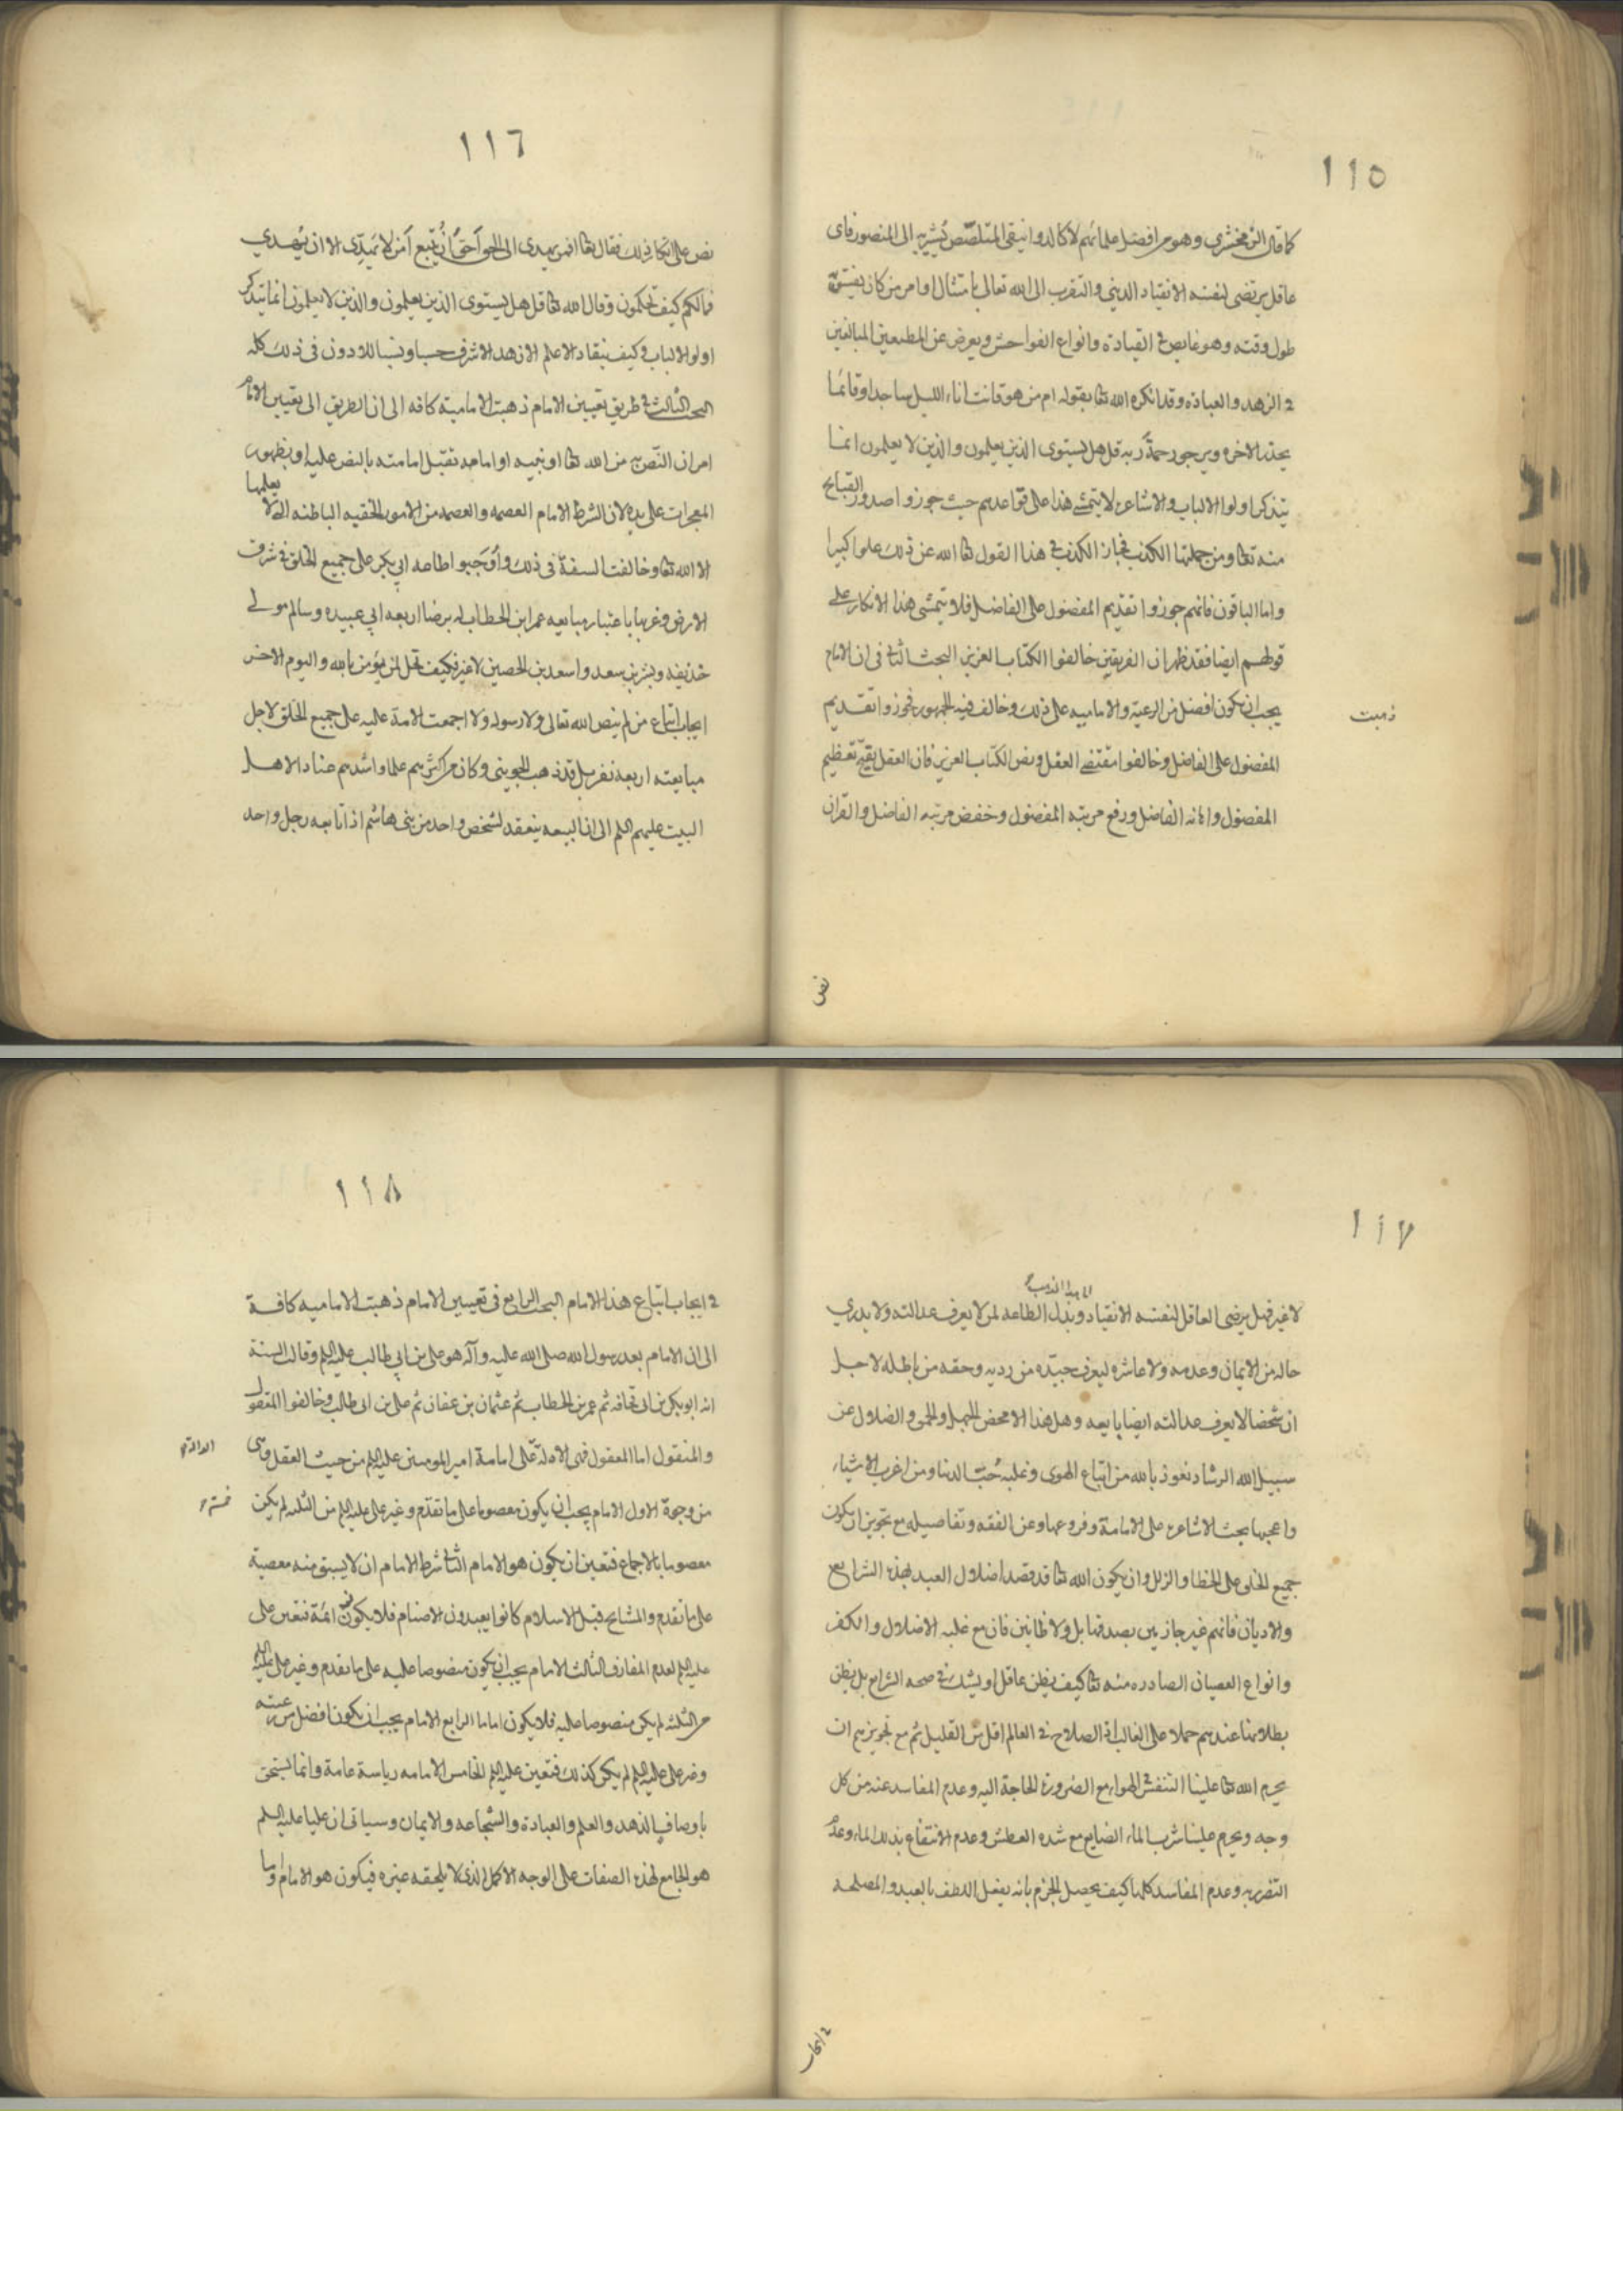 ١١٥
كما قال الزمخشري وهو من افضل علمائهم لا كالدوانيقى المتلصّص يُشير به الى المنصور فاى
عاقل يرتضى لنفسه الانقياد الدينى والتقرب الى الله تعالى بامتثال اوامر من كان يفسق
طول وقته وهو غايص فى القيادة وانواع الفواحش ويعرض عن المطيعين المبالغين
فى الزهد والعبادة وقد انكره الله تعا بقوله ام من هو قانت اناء الليل ساجدا وقائما
يحذر الاخره ويرجو رحمة ربه قل هل يستوى الذين يعلمون والذين لا يعلمون انما
يتذكر اولوا الالباب والاشاعره لا يتمشى هذا على قواعدهم حيث جوزوا صدور القبايح
منه تعا ومن جملتها الكذب فجاز الكذب فى هذا القول تعا الله عن ذلك علوا كبيرا
واما الباقون فانهم جوزوا تقديم المفضول على الفاضل فلا يتمشى هذا الانكار على
قولهم ايضا فقد ظهر ان الفريقين خالفوا الكتاب العزيز البحث الثانى فى ان الامام
يجب ان يكون افضل من الرعيّة والاماميه على ذلك وخالف فيه الجمهور فجوزوا تقديم
ذهبت
المفضول على الفاضل وخالفوا مقتضى العقل ونص الكتاب العزيز فان العقل يقبح تعظيم
المفضول واهانه الفاضل ورفع مرتبه المفضول وخفض مرتبه الفاضل والقران
نص
١١٦
نص على انكار ذلك فقال تعا افمن يهدى الى الحق أحقّ أن يُتّبع أمّن لا يَهِدّى الا ان يُهدي
فمالكم كيف تحكمون وقال الله تعا قل هل يستوى الذين يعلمون والذين لا يعلمون انما يتذكر
اولو الالباب وكيف ينقاد الاعلم الازهد الاشرف حسبا ونسبا للادون فى ذلك كله
البحث الثالث فى طريق تعيين الامام ذهبت الاماميّة كافه الى ان الطريق الى تعيين الامام
امران النّص من الله تعا او نبيه او امام تقبل امامته بالنص عليه او بظهور
المعجزات على يده لان شرط الامام العصمه والعصمه من الامور الخفيه الباطنه التى لا يعلمها
الا الله تعا وخالفت السنة فى ذلك وأوجبوا اطاعه ابي بكر على جميع الخلق فى شرق
الارض وغربها باعتبار مبايعه عمر ابن الخطاب له برضا اربعه ابي عبيده وسالم مولى
حذيفه وبشر بن سعد واسعد بن الحصين لا غير فكيف تحل لمن يؤمن بالله واليوم الاخر
ايجاب اتباع من لم ينص الله تعالى ولا رسوله ولا اجمعت الامة عليه على جميع الخلق لاجل
مبايعته اربعة نفر بل قد ذهب الجوينى وكان من اكثرهم علما واشدهم عنادا لاهل
البيت عليهم السلم الى ان البيعه ينعقد لشخص واحد من بنى هاشم اذا تابعه رجل واحد
١١٧
لا غير فهل يرضى العاقل لنفسه الانقياد وبذل الطاعه لمن لا يعرف عدالته ولا يدري
حاله من الايمان وعدمه ولا عاشره ليعرف جيّده من رديه وحقه من باطله لاجل
ان شخصا لا يعرف عدالته ايضا بايعه وهل هذا الا محض الجهل والحمق والضلال عن
سبيل الله الرشاد نعوذ بالله من اتباع الهوى وغلبة حُبّ الدنيا ومن اغرب الاشياء
واعجبها بحث الاشاعره على الامامة وفروعها وعن الفقه وتفاصيله مع تجويز ان يكون
جميع الخلق على الخطا والزلل وان يكون الله تعا قد قصد اضلال العبيد بهذه الشرايع
والاديان فانهم غير جازمين بصدق قايل ولا ظانين فان مع غلبه الاضلال والكفر
وانواع العصيان الصادره منه تعا كيف يظن عاقل او يشك فى صحه الشرايع بل يظن
بطلانها عندهم حملا على الغالب اذ الصلاح فى العالم اقل من القليل ثم مع تجويزهم ان
يحرم الله تعا علينا التنفس فى الهواء مع الضرورة والحاجة اليه وعدم المفاسد عنه من كل
وجه ويحرم علينا شرب الماء الضايع مع شده العطش وعدم الانتفاع بذلك الماء وعدم
التضرر به وعدم المفاسد كلها كيف يحصل الجزم بانه يفعل اللطف بالعبد والمصلحه
فى ايجاب
١١٨
فى ايجاب اتباع هذا الامام البحث الرابع فى تعيين الامام ذهبت الاماميه كافة
الى ان الامام بعد رسول الله صلى الله عليه وآله هو على بن ابي طالب عليه السلم وقالت السنة
انه ابو بكر بن ابى قحافه ثم عمر بن الخطاب ثم عثمان بن عفان ثم على بن ابى طالب وخالفوا المعقول
والمنقول اما المعقول فهى الادلة على امامة امير المومنين عليه السلم من حيث العقل وهى
الدالة
من وجوه الاول الامام يجب ان يكون معصوما على ما تقدّم وغير على عليه السلم من الثلثه لم يكن
معصوما بالاجماع فتعين ان يكون هو الامام الثانى شرط الامام ان لا يسبق منه معصية
على ما تقدم والمشايخ قبل الاسلام كانوا يعبدون الاصنام فلا يكونون ائمة فتعين على
عليه السلم لعدم الفارق الثالث الامام يجب ان يكون منصوصا عليه على ما تقدم وغير على عليه السلم
من الثلثه لم يكن منصوصا عليه فلا يكون اماما الرابع الامام يجب ان يكون افضل من رعيته
وغير على عليه السلم لم يكن كذلك فتعين عليه السلم الخامس الامامه رياسة عامة وانما يستحق
باوصاف الزهد والعلم والعبادة والشجاعه والايمان وسياتى ان عليا عليه السلم
هو الجامع لهذه الصفات على الوجه الاكمل الذى لا يلحقه غيره فيكون هو الامام واما